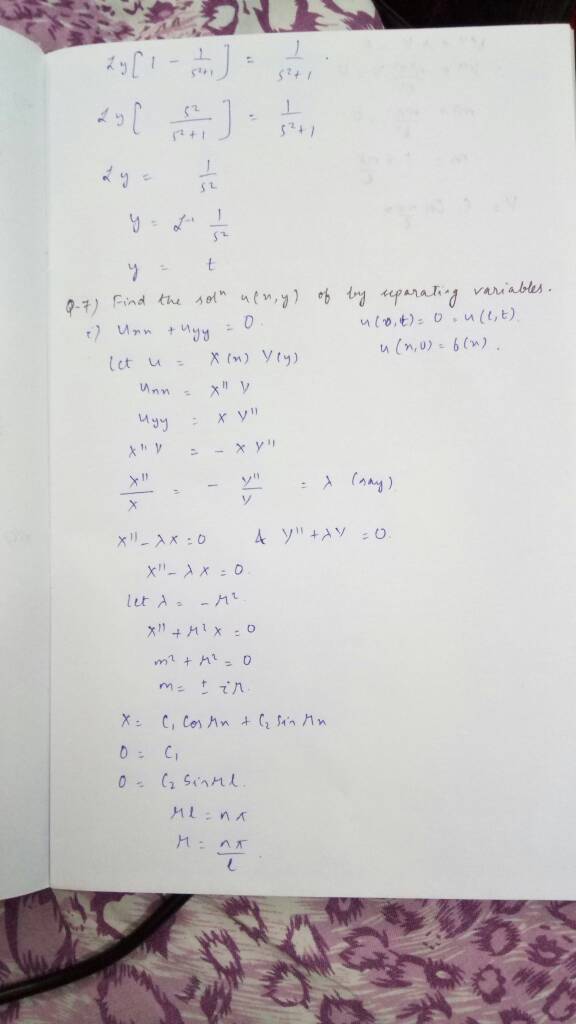 Ly[ 1 - 1/(s²+1) ] = 1/(s²+1).
Ly[ s²/(s²+1) ] = 1/(s²+1)
Ly = 1/s²
y = L⁻¹ 1/s²
y = t
Q-7) Find the solⁿ u(x,y) of by separating variables.
i) uxx + uyy = 0. u(0,t) = 0 = u(l,t).
let u = X(x) Y(y) u(x,0) = f(x).
uxx = X" Y
uyy = X Y"
X" Y = - X Y"
X"/X = - Y"/Y = λ (say)
X" - λX = 0 & Y" + λY = 0.
X" - λX = 0.
let λ = - μ²
X" + μ² X = 0
m² + μ² = 0
m = ± iμ.
X = C₁ Cos μx + C₂ Sin μx
0 = C₁
0 = C₂ Sin μl.
μl = nπ
μ = nπ/l.